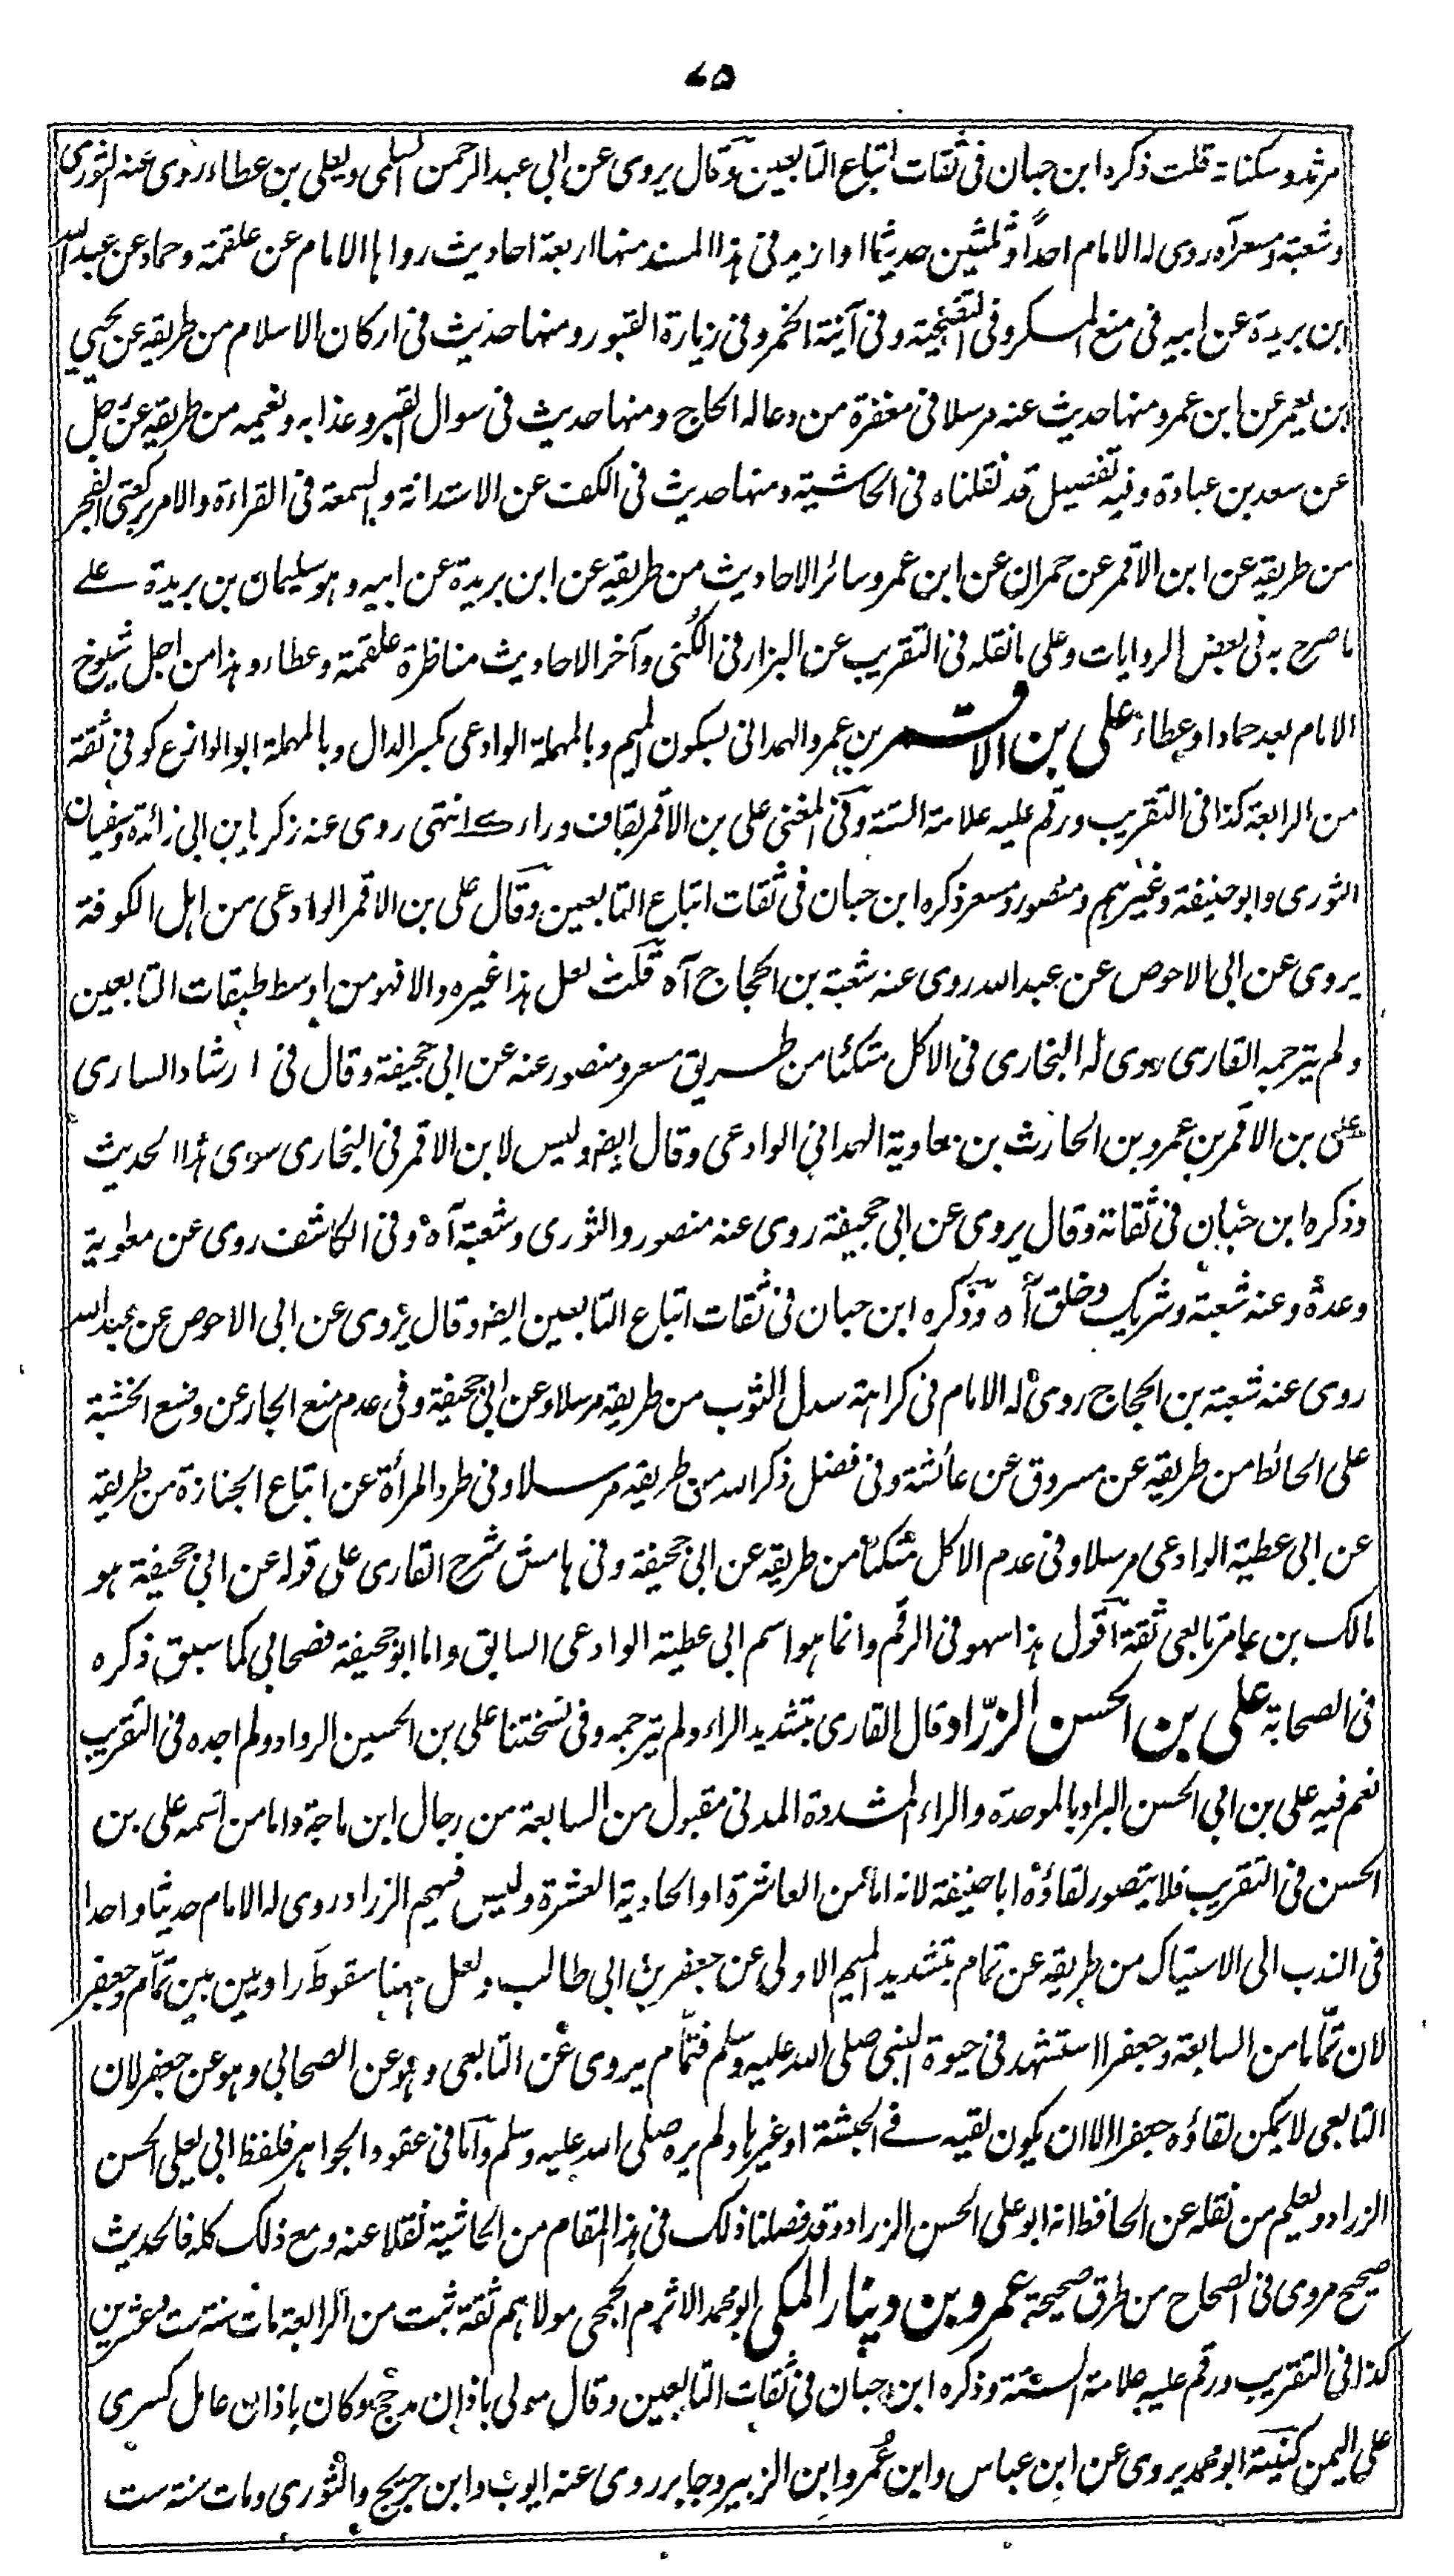 ۷۵
مرثد وسكناته قلت ذكره ابن حبان فى ثقات اتباع التابعين وقال يروى عن ابى عبد الرحمن السلمى ويعلى بن عطاء روى عنه الثورى
وشعبة ومسعر آه روى له الامام احدا وثلثين حديثا او ازيد فى هذا المسند منها اربعة احاديث رواها الامام عن علقمة وحماد عن عبد الله
ابن بريدة عن ابيه فى منع المسكر وفى التضحية وفى آنية الخمر وفى زيارة القبور ومنها حديث فى اركان الاسلام من طريقه عن يحيى
ابن يعمر عن ابن عمر ومنها حديث عنه مرسلا فى مغفرة من دعا له الحاج ومنها حديث فى سوال القبر وعذابه ونعيمه من طريقه عن رجل
عن سعد بن عبادة وفيه تفصيل قد نقلناه فى الحاشية ومنها حديث فى الكف عن الاستدانة والسمعة فى القراءة والامر بركعتى الفجر
من طريقه عن ابن الاقمر عن حمران عن ابن عمر وسائر الاحاديث من طريقه عن ابن بريدة عن ابيه وهو سليمان بن بريدة على
ما صرح به فى بعض الروايات وعلى ما نقله فى التقريب عن البزار فى الكنى وآخر الاحاديث مناظرة علقمة وعطاء وهذا من اجل شيوخ
الامام بعد حماد او عطاء على بن الاقمر بن عمرو الهمدانى بسكون الميم وبالمهملة الوادعى بكسر الدال وبالمهملة ابو الوازع كوفى ثقة
من الرابعة كذا فى التقريب ورقم عليه علامة الستة وفى المغنى على بن الاقمر بقاف وراء كذا انتهى روى عنه زكريا بن ابى زائدة وسفيان
الثورى وابو حنيفة وغيرهم ومنصور ومسعر ذكره ابن حبان فى ثقات اتباع التابعين وقال على بن الاقمر الوادعى من اهل الكوفة
يروى عن ابى الاحوص عن عبد الله روى عنه شعبة بن الحجاج آه قلت لعل هذا غيره والا فهو من اوسط طبقات التابعين
ولم يترجمه القارى روى له البخارى فى الاكل متكئا من طريق مسعر ومنصور عنه عن ابى جحيفة وقال فى ارشاد السارى
على بن الاقمر بن عمرو بن الحارث بن معاوية الهمدانى الوادعى وقال ايضا وليس لابن الاقمر فى البخارى سوى هذا الحديث
وذكره ابن حبان فى ثقاتة وقال يروى عن ابى جحيفة روى عنه منصور والثورى وشعبة آه وفى الكاشف روى عن معاوية
وعدة وعنه شعبة وشريك وخلق آه وذكره ابن حبان فى ثقات اتباع التابعين ايضا وقال يروى عن ابى الاحوص عن عبد الله
روى عنه شعبة بن الحجاج روى له الامام فى كراهة سدل الثوب من طريقه مرسلا وعن ابى جحيفة وفى عدم منع الجار عن وضع الخشبة
على الحائط من طريقه عن مسروق عن عائشة وفى فضل ذكر الله من طريقه مرسلا وفى طرد المرأة عن اتباع الجنازة من طريقه
عن ابى عطية الوادعى مرسلا وفى عدم الاكل متكئا من طريقه عن ابى جحيفة وفى هامش شرح القارى على قوله عن ابى جحيفة هو
مالك بن عامر تابعى ثقة اقول هذا سهو فى الرقم وانما هو اسم ابى عطية الوادعى السابق واما ابو جحيفة فصحابى كما سبق ذكره
فى الصحابة على بن الحسن الزرّاد قال القارى بتشديد الراء ولم يترجمه وفى نسختنا على بن الحسين الرواد ولم اجده فى التقريب
نعم فيه على بن ابى الحسن البراد بالموحدة والراء المشددة المدنى مقبول من السابعة من رجال ابن ماجة واما من اسمه على بن
الحسن فى التقريب فلا يتصور لقاؤه ابا حنيفة لانه اما من العاشرة او الحادية العشرة وليس فيهم الزراد روى له الامام حديثا واحدا
فى الندب الى الاستياك من طريقه عن تمام بتشديد الميم الاولى عن جعفر بن ابى طالب ولعل ههنا سقوط راويين بين تمّام وجعفر
لان تمّاما من السابعة وجعفرا استشهد فى حيوة النبى صلى الله عليه وسلم فتمّام يروى عن التابعى وهو عن الصحابى وهو عن جعفر لان
التابعى لا يمكن لقاؤه جعفرا الا ان يكون لقيه فى الحبشة او غيرها ولم يره صلى الله عليه وسلم واما فى عقود الجواهر فلفظ ابى يعلى الحسن
الزراد ويعلم من نقله عن الحافظ انه ابو على الحسن الزراد وقد فصلنا ذلك فى هذا المقام من الحاشية نقلا عنه ومع ذلك كله فالحديث
صحيح مروى فى الصحاح من طرق صحيحة عمرو بن دينار المكى ابو محمد الاثرم الجمحى مولاهم ثقة ثبت من الرابعة مات سنة ست وعشرين
كذا فى التقريب ورقم عليه علامة الستة وذكره ابن حبان فى ثقات التابعين وقال مولى باذان مذحج وكان باذان عامل كسرى
على اليمن كنيته ابو محمد يروى عن ابن عباس وابن عمر وابن الزبير وجابر روى عنه ايوب وابن جريج والثورى ومات سنة ست